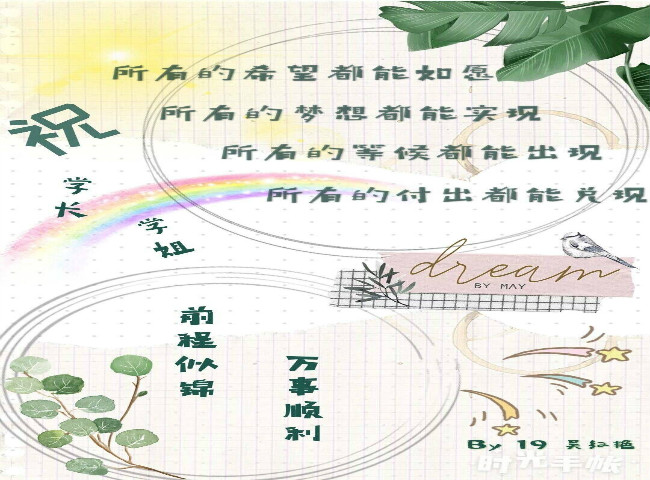 所有的希望都能如愿
所有的梦想都能实现
所有的等候都能出现
所有的付出都能兑现
祝
学长
学姐
dream
BY MAY
前程似锦
万事顺利
By 19 吴红艳
时光手帐